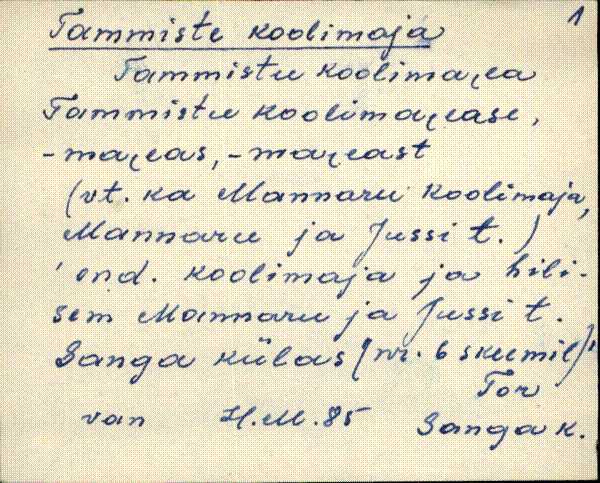 1
Tammiste koolimaja
Tammistu koolimai̯a
Tammistu koolimai̯ase,
-mai̯as, -mai̯ast
(vt. ka Mannaru koolimaja,
Mannaru ja Jussi t.)
'end. koolimaja ja hili-
sem Mannaru ja Jussi t.
Sanga külas (nr. 6 skeemil)'
Tor
van H.M.85 Sanga k.